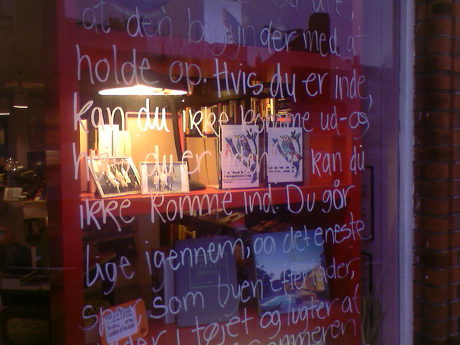 at den begynder med at
holde op. Hvis du er inde,
kan du ikke komme ud - og
hvis du er kan du
ikke komme ind. Du går
lige igennem, og det eneste
som byen efterlader,
i tøjet og lugter af
sommeren